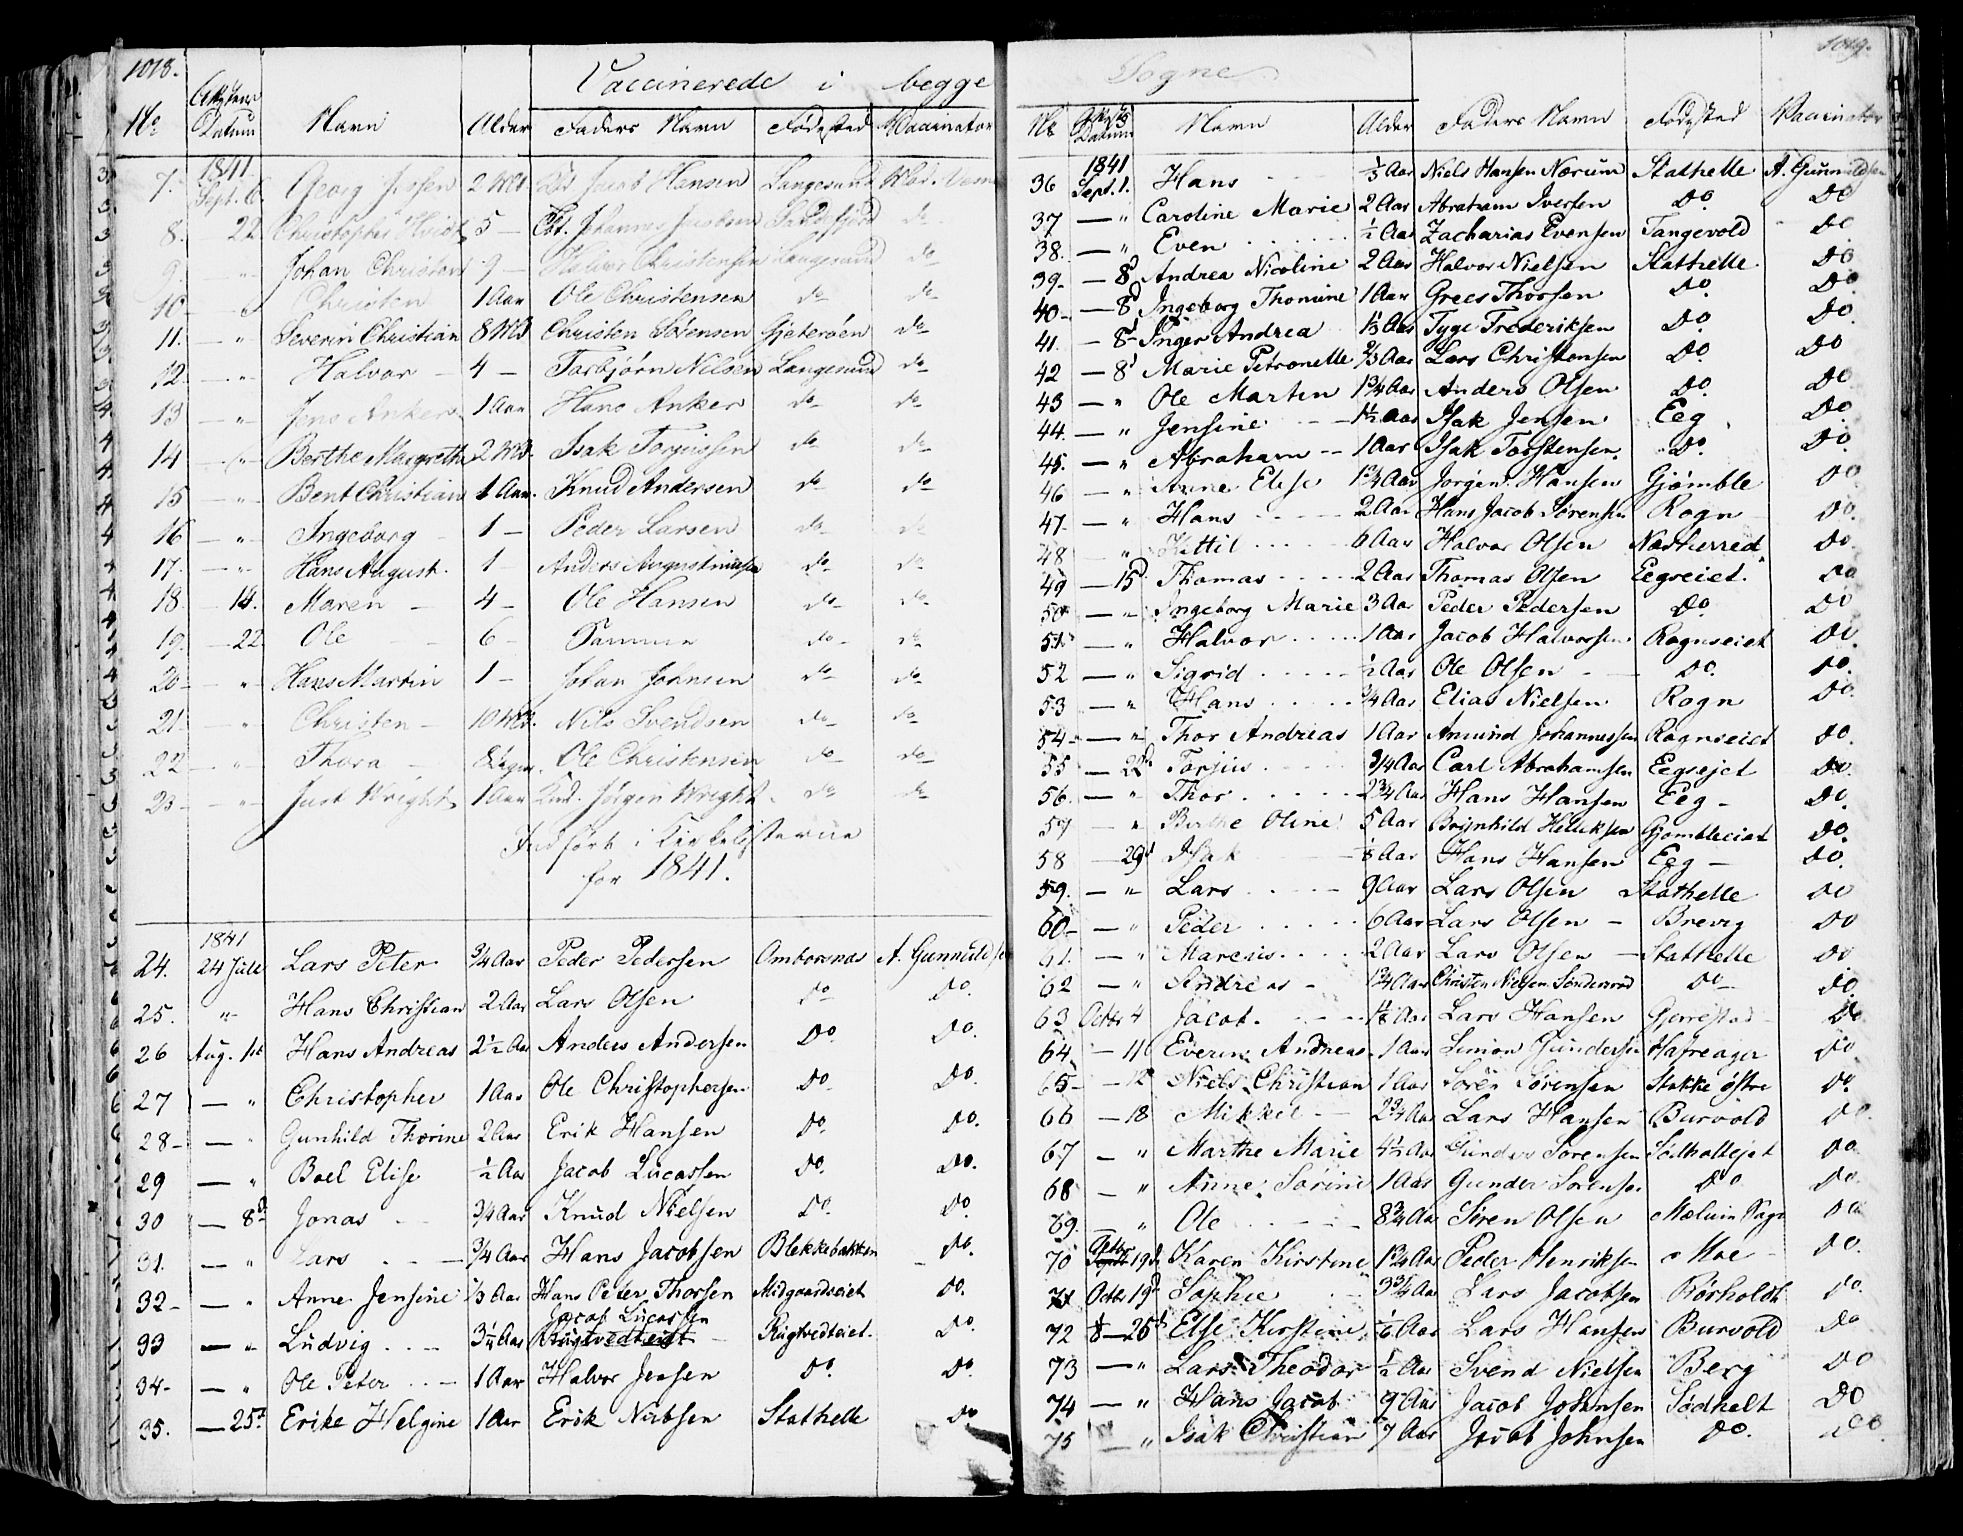 1018.
Vaccinerede i begge
No Datum Navn Alder Faders Navn Fødested Vaccinator
7. 1841 Sept. 6. Georg 2 Md Jacob Hansen Langesund
8. - 22 Christopher 5 - Johannes do
9. - " Johan Christian 9 - Christensen Langesund do
10 - " Christen 1 Aar Ole Christensen do do
11. - " Severin Christian 8 Md Christen Sørensen Gjeterøen do
12. - " Halvor - 4 - Torbjørn Nilsen Langesund do
13 - " Jens Anker 1 Aar Hans Anker do do
14 - " Berthe Margrethe 2 Md. Isak Torjussen do do
15 - " Bent Christian 1 Aar. Knud Andersen do do
16 - " Ingeborg 1 - Peder Larsen do do
17. - " Hans August. 1 - Anders Augustinusen do do
18. - 14. Maren - 4 - Ole Hansen do do
19. - 22 Ole - 6 - do do
20 - " Hans Martin 1 - Johan Johnsen do do
21. - " Christen - 10 Md. Nils Svendsen do do
22 - " Thora - Ole Christensen do do
23 - " Just Wright 1 Aar Jørgen Wright. do do
Indført i Kirkelisterne
for 1841.
24. 1841 24 Jule Lars Peter 3/4 Aar Peder Pedersen Omborsnæs A. Gunnuldsen
25. " Hans Christian 2 Aar Lars Olsen Do Do.
26 Aug. 1st Hans Andreas 2 1/2 Aar Anders Andersen Do Do.
27 - " Christopher 1 Aar Ole Christophersen Do Do.
28 - " Gunhild Thorine 2 Aar Erik Hansen Do. Do.
29 - " Boel Elise 1/2 Aar Jacob Lucassen Do. Do.
30 - 8d Jonas - 3/4 Aar Knud Nielsen Do. Do.
31. - " Lars - 3/4 Aar Hans Jacobsen Blekkebakken Do.
32 - " Anne Jensine 1/3 Aar Hans Peter Thorsen Midgaardseiet Do.
33 - " Ludvig 3 1/2 Aar Jacob Lucassen Rugtvedteiet. Do.
34 - " Ole Peter 1 Aar Halvor Jensen Do. Do.
35. - 25d Erike Helgine 1 Aar Erik Nirbsen Stathelle Do
1019.
Sogne.
No Datum Navn Alder Faders Navn Fødested Vaccinator
36 1841 Sept. 1. Hans 1/3 Aar Niels Hansen Nærum Stathelle A. Gunnuldsen
37 - " Caroline Marie 2 Aar Abraham Iversen Do. Do
38. - " Even 1/2 Aar Zacharias Evensen Tangevold Do.
39 - 8d Andrea Nicoline 2 Aar Halvor Nielsen Stathelle Do
40 - 8d Ingeborg Thomine 1 Aar Grees Thorsen Do. Do.
41. - 8d Inger Andrea 1 1/3 Aar Tyge Frederiksen Do. Do.
42 - 8d Marie Petronelle 2/3 Aar Lars Christensen Do. Do
43 - " Ole Martin 1 3/4 Aar Anders Olsen Do. Do.
44. - " Jensine 1 1/2 Aar Isak Jensen Eeg Do.
45. - " Abraham 1 Aar Isak Torstensen. Do. Do.
46 - " Anne Elise 1 3/4 Aar Jørgen Hansen Gjømble Do
47 - " Hans 2 Aar Hans Jacob Sørensen Rogn Do.
48 " Kittil 6 Aar Halvor Olsen Do.
49 - 15d Thomas 2 Aar Thomas Olsen Eegseiet. Do
50 - " Ingeborg Marie 3 Aar Peder Pedersen Do. Do
51 - " Halvor 1 Aar Jacob Halvorsen Rognseiet Do.
52 - " Sigrid 1/2 Aar Ole Olsen Do. Do.
53 - " Hans 3/4 Aar Elias Nielsen Rogn Do.
54 - " Thor Andreas 1 Aar Amund Johannessen Rognseiet Do.
55 - 22d Torjus 3/4 Aar Carl Abrahamsen Eegsejet Do.
56. - " Thor 2 3/4 Aar Hans Hansen Eeg - Do.
57 - " Birthe Oline 5 Aar Brynhild Helliksen Gjømbleeiet Do.
58 - 29d Isak Aar Hans Hansen Eeg - Do.
59. - " Lars 9 Aar Lars Olsen Stathelle Do
60 - " Peder 6 Aar Lars Olsen - Brevig Do
61. - " Marcus 2 Aar Lars Olsen - Stathelle Do
62 - " Andreas - 1 3/4 Aar Christen Nielsen Sønderrød Do Do.
63 Octbr 4 Jacob. Aar Lars Hansen Gjerrestad Do.
64 - 11 Everin Andreas 1 Aar Simon Gundersen Hafreager Do.
65 - 12 Niels Christian 1 Aar Søren Sørensen Stokke østre Do.
66 - 18 Mikkel 2 3/4 Aar Lars Hansen Burvold Do.
67 - " Marthe Marie 4 1/2 Aar Gunder Sørensen Sødholtejet Do.
68 - " Anne Sørine 1 Aar Gunder Sørensen Do Do.
69. - " Ole 8 3/4 Aar Søren Olsen Do
70 Octbr 19d Karen Kirstine 1 3/4 Aar Peder Henriksen Moe Do.
71 Octbr 19d Sophie 3 3/4 Aar Lars Jacobsen Rørholdt Do.
72 - 25d Else Kirstine Aar Lars Hansen Burvold Do
73 - " Lars Theodor 1/2 Aar Svend Nielsen Berg Do
74 - " Hans Jacob 9 Aar Jacob Johnsen Sødholt Do
75 - " Isak Christian 7 Aar Jacob Johnsen Do. Do.